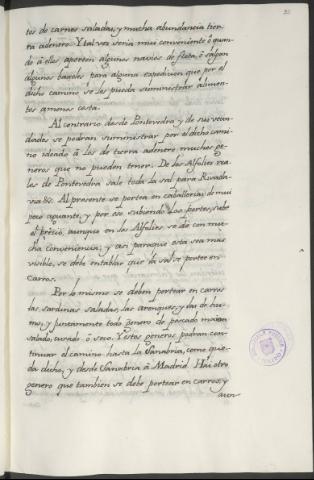 tos de carnes saladas, y mucha abundancia tier-
ra adentro. Y tal vez seria mui conveniente ó quan-
do á ellas aporten algunos navios de flota, ó salgan
algunos baxeles para alguna expedicion que por el
dicho camino se les pueda suministrar alimen-
tos á menos costa.
Al contrario desde Pontevedra y de sus vecin-
dades se podran suministrar por el dicho cami-
no ideado á los de tierra adentro muchos ge-
neros que no pueden tener. De los Alfolies rea-
les de Pontevedra sale toda la sal para Rivada-
via &c. Al presente se portea en caballerias de mui
poco aguante, y por eso subiendo los portes, sube
el précio, aunque en los Alfolies se dé con mu-
cha conveniencia; y asi paraque esta sea mas
visible, se debe entablar que la sal se portee en
carros.
Por lo mismo se deben portear en carros
las sardinas saladas, las arenques, y las de hu-
mo, y juntamente todo genero de pescado
salado, curado ó seco. Y estos generos podran con-
tinuar el camino hasta la Sanabria, como que-
da dicho, y desde Sanabria á Madrid. Hai otro
genero que tambien se debe portear en carros, y
aun